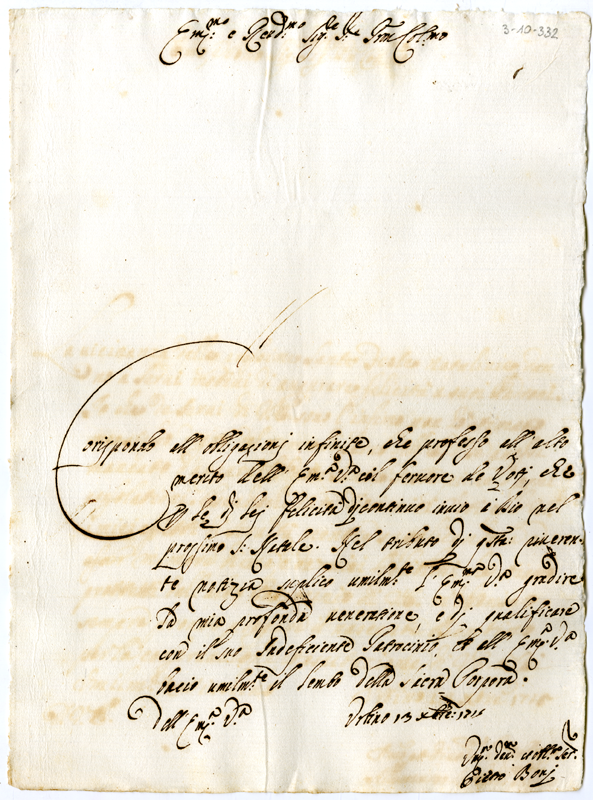 3-10-332
Em.mo e Rend.mo Sig.re P.re Col.mo
Corispondo all obbligazioni infinite, che professo all alto
merito dell Em.a V.a col fervore de Voti, che
p le di lei felicità di continuo invio a Dio nel
prossimo S: Natale. Nel tributo di q.sta: riveren-
te notizia suplico umilm.te l'Em.a V.a gradire
la mia profonda veneratione, e di qualificare
con il suo Indeficiente Patrocinio, et all Em.a V.a
bacio umilm.te il lembo della Sacra Porpora.
Dell Em.a V.a Urbino 13 xbre: 1715
Um.o Dev.mo et obb.mo Ser.
Pietro Bonj